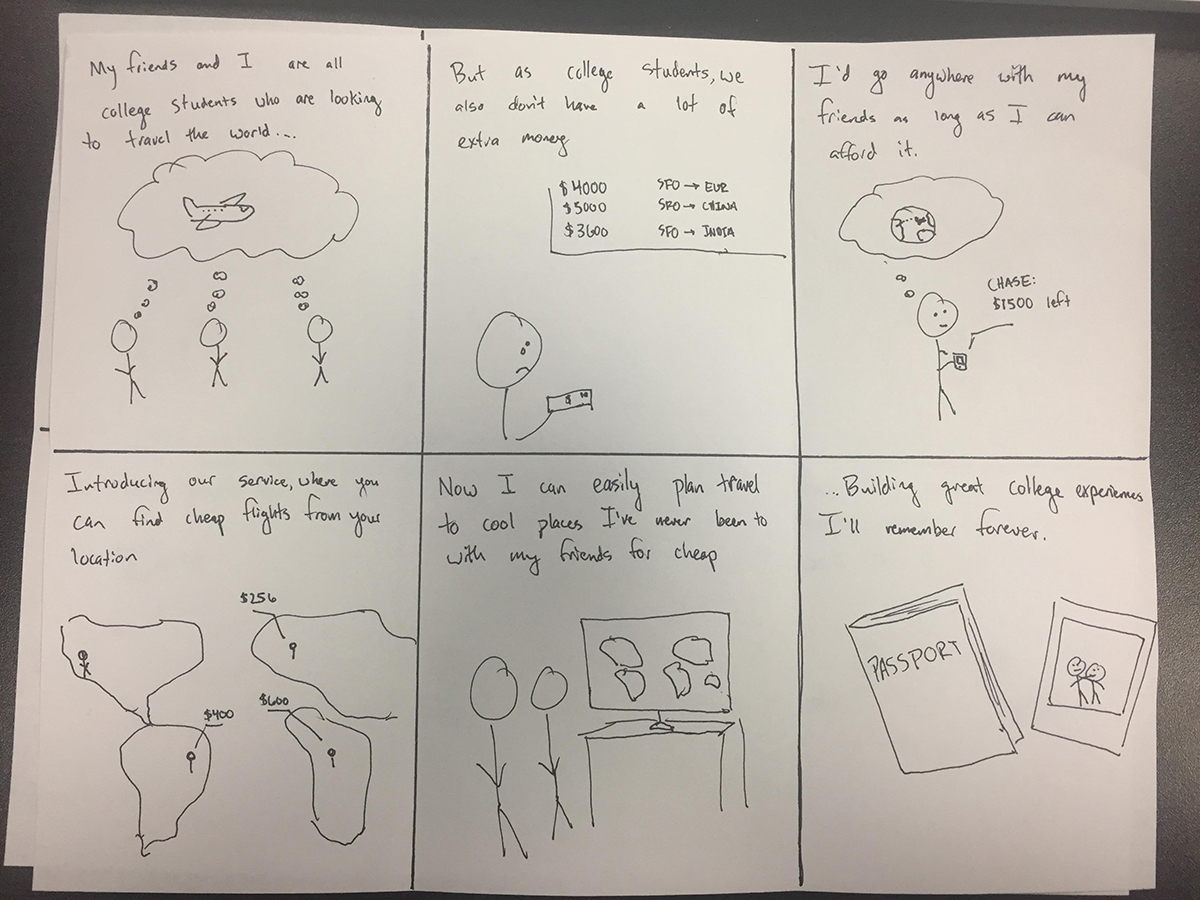 My friends and I are all
college students who are looking
to travel the world...
But as college students, we
also don't have a lot of
extra money
$4000 SFO → EUR
$5000 SFO → CHINA
$3600 SFO → INDIA
$
I'd go anywhere with my
friends as long as I can
afford it.
CHASE:
$1500 left
Introducing our service, where you
can find cheap flights from your
location
$256
$600
$400
Now I can easily plan travel
to cool places I've never been to
with my friends for cheap
...Building great college experiences
I'll remember forever.
PASSPORT